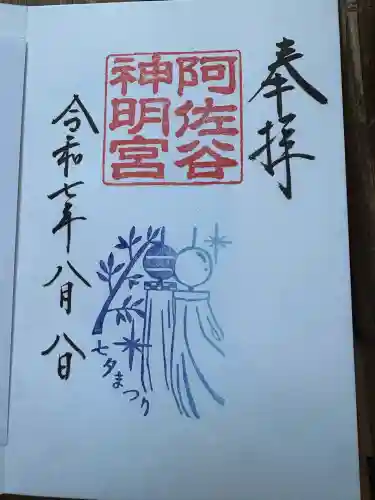 奉拝
阿佐谷
神明宮
令和七年八月八日
七夕まつり